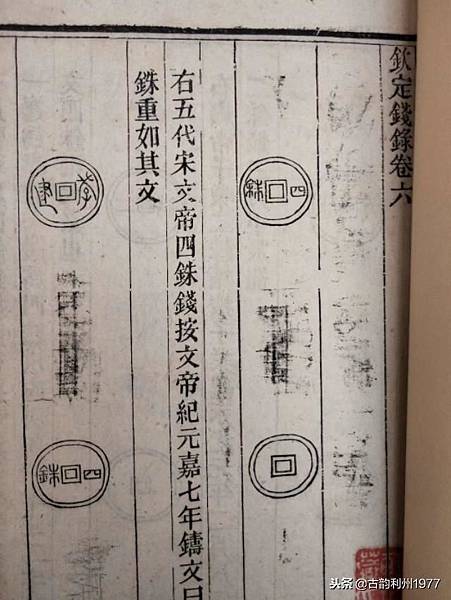 欽定錢錄卷六
四銖
右五代宋文帝四銖錢按文帝紀元嘉七年鑄文曰四
銖重如其文
孝建
四銖
头条 @古韵利州1977